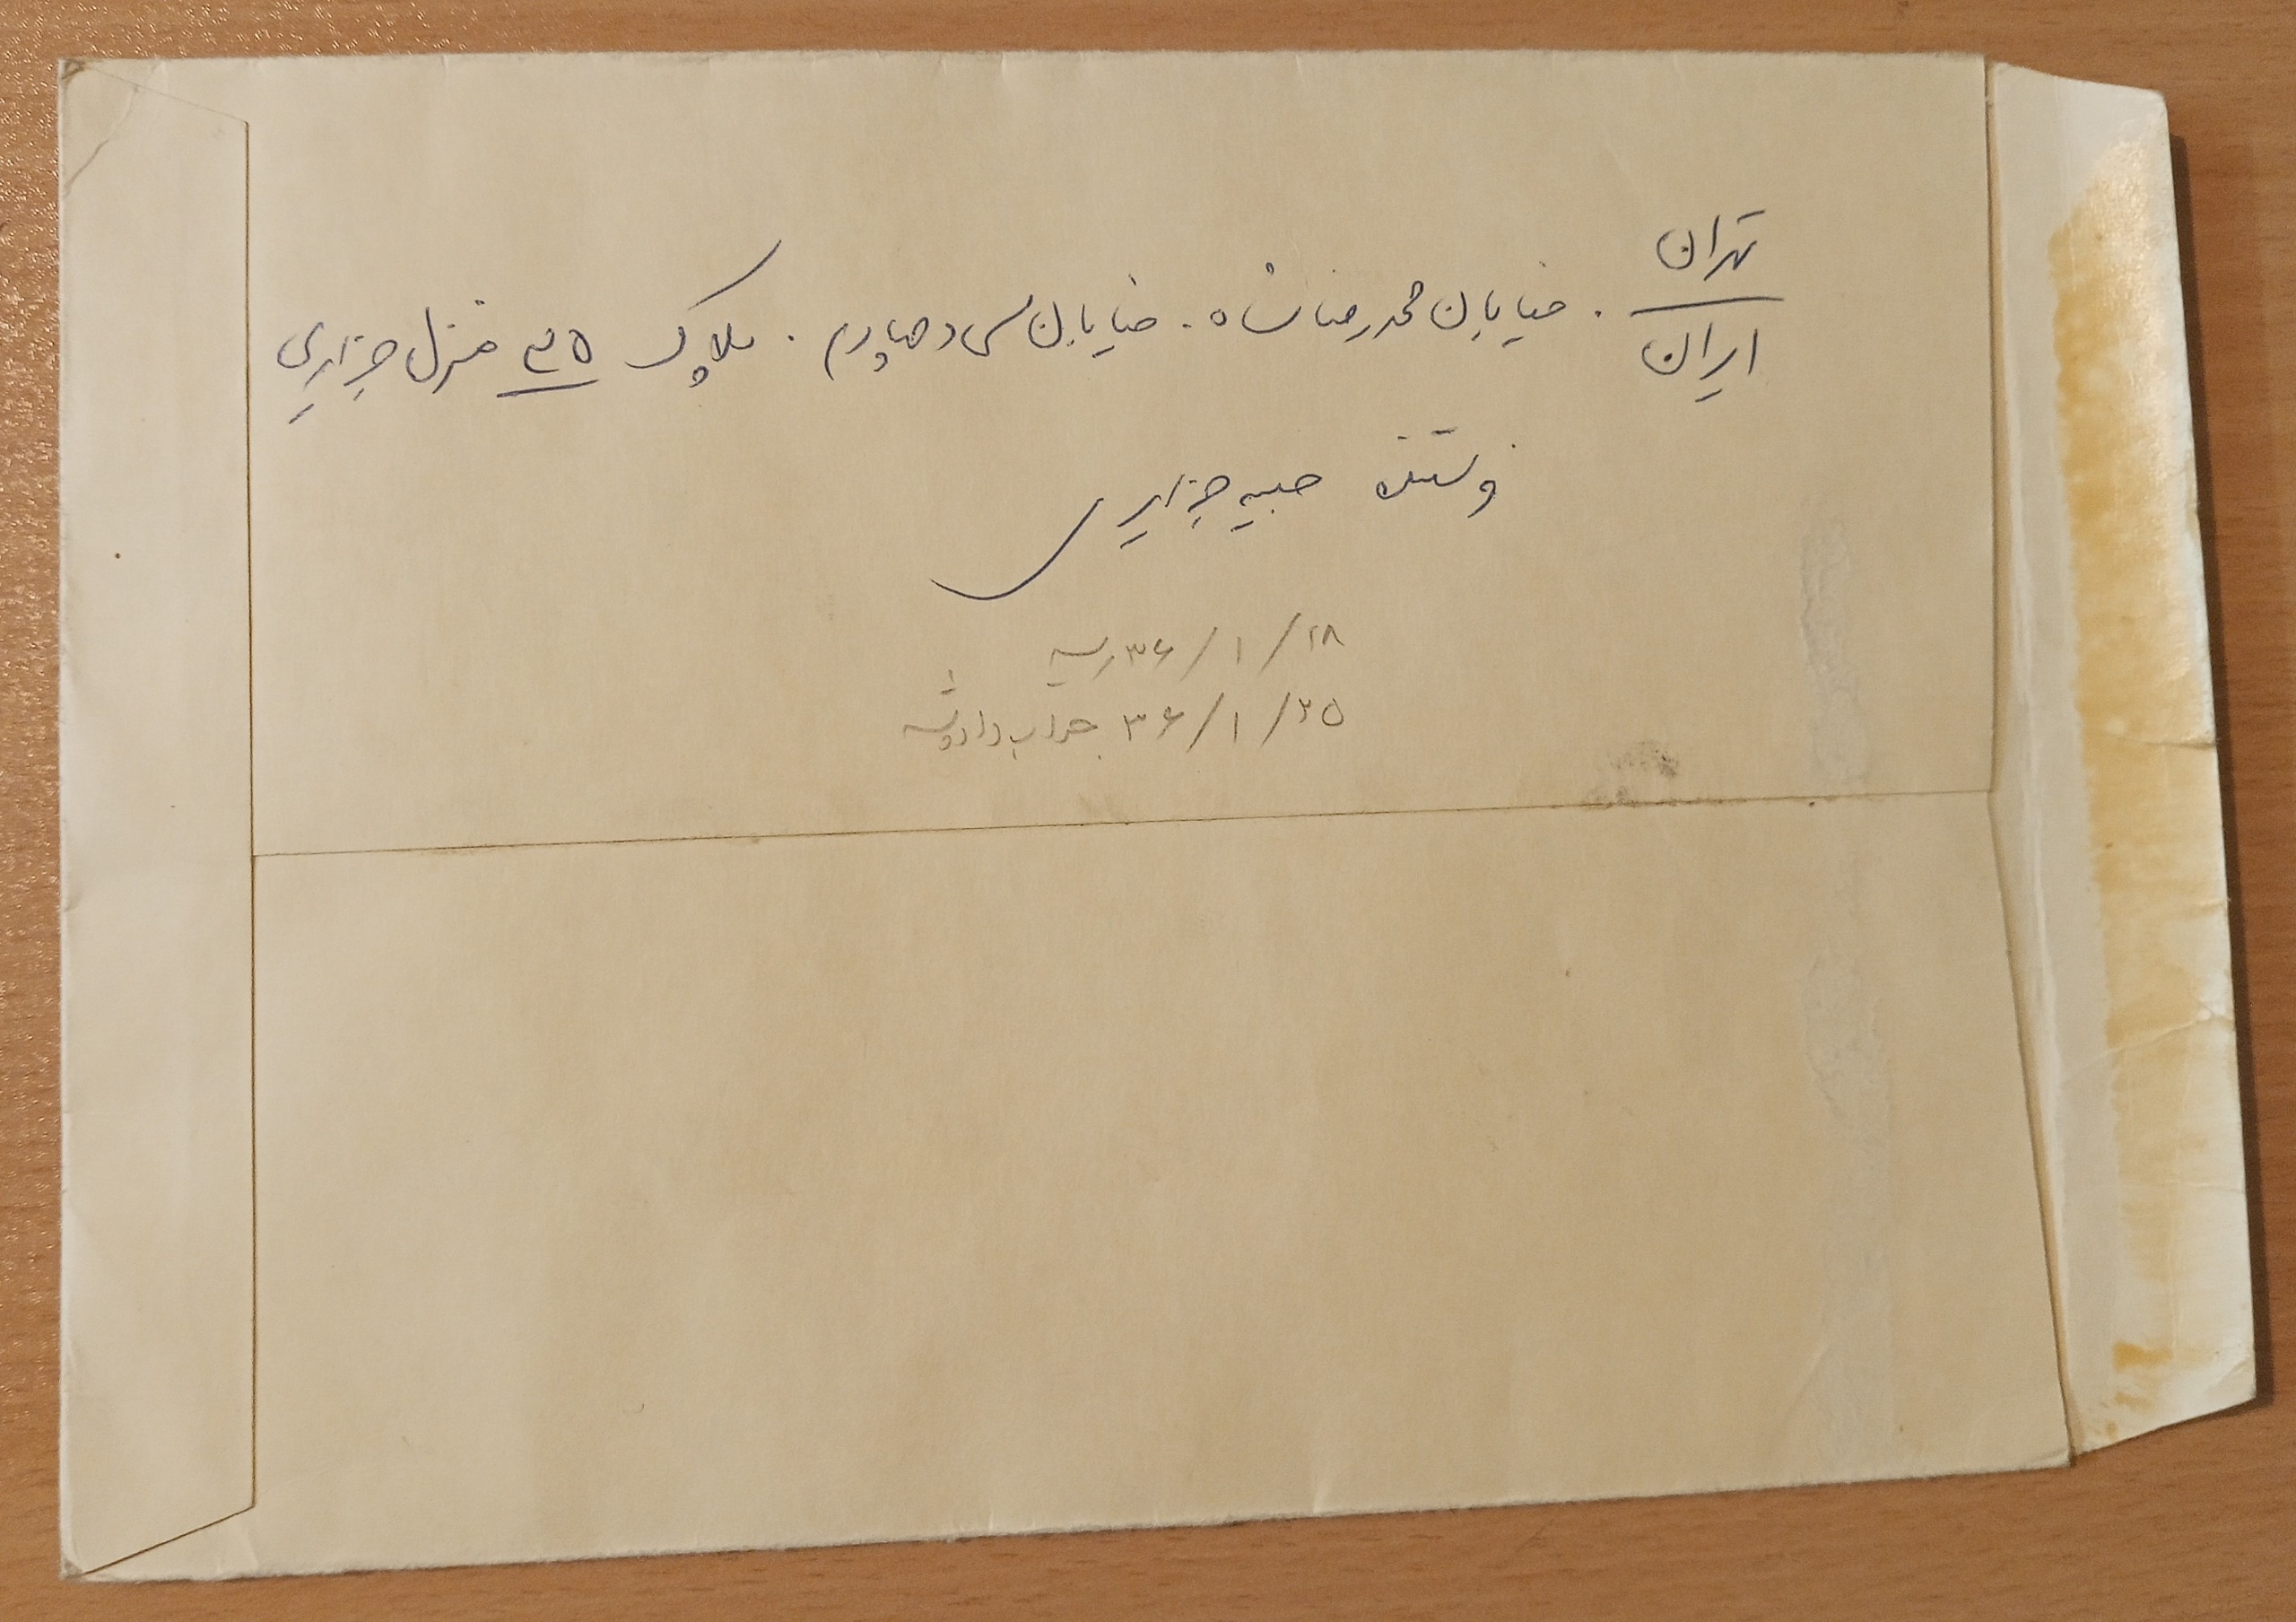 تهران
ایران . خیابان محمدرضا شاه . خیابان سی و چهارم . پلاک ۳۵ منزل جزایری
فرستنده حبیبه جزایری
۳۶/۱/۱۸ رسید
۳۶/۱/۲۵ جواب داده شد